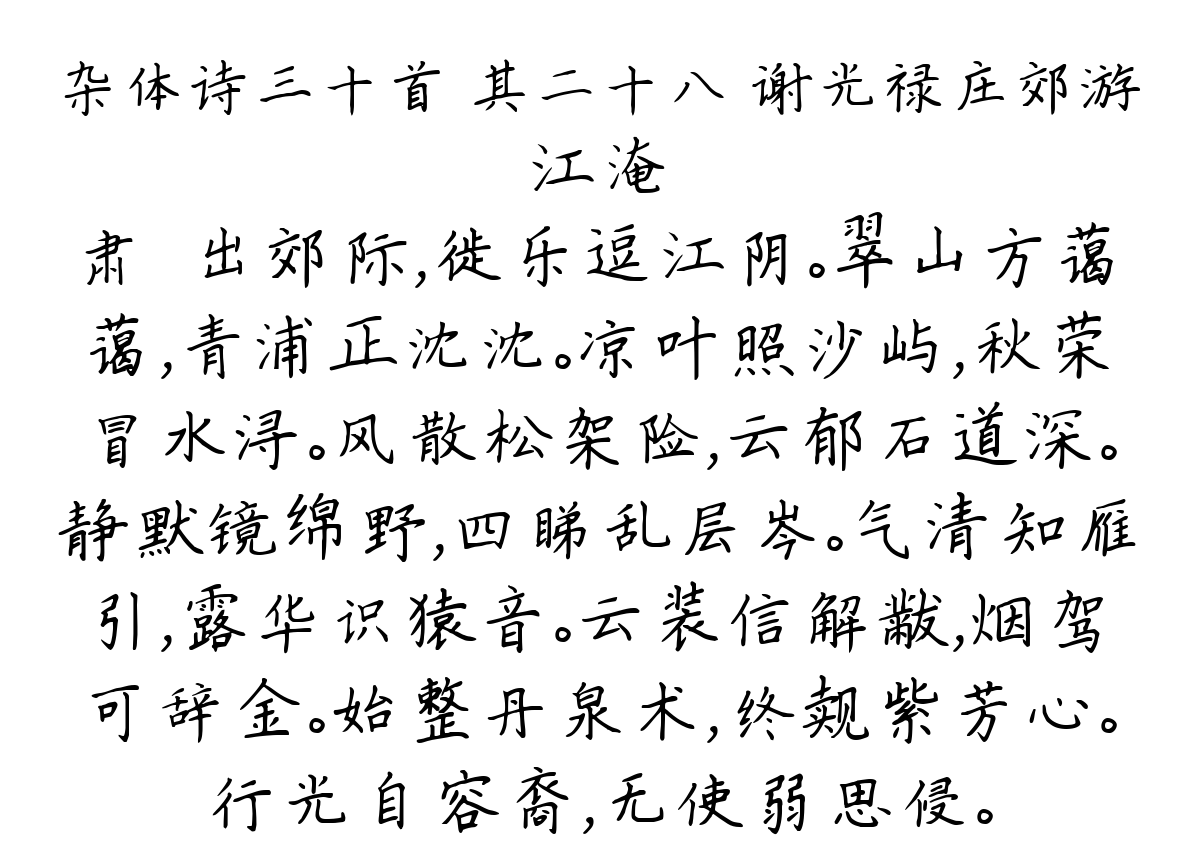 杂体诗三十首 其二十八 谢光禄庄郊游
江淹
肃 出郊际,徙乐逗江阴。翠山方蔼
蔼,青浦正沈沈。凉叶照沙屿,秋荣
冒水浔。风散松架险,云郁石道深。
静默镜绵野,四睇乱层岑。气清知雁
引,露华识猿音。云装信解黻,烟驾
可辞金。始整丹泉术,终觌紫芳心。
行光自容裔,无使弱思侵。